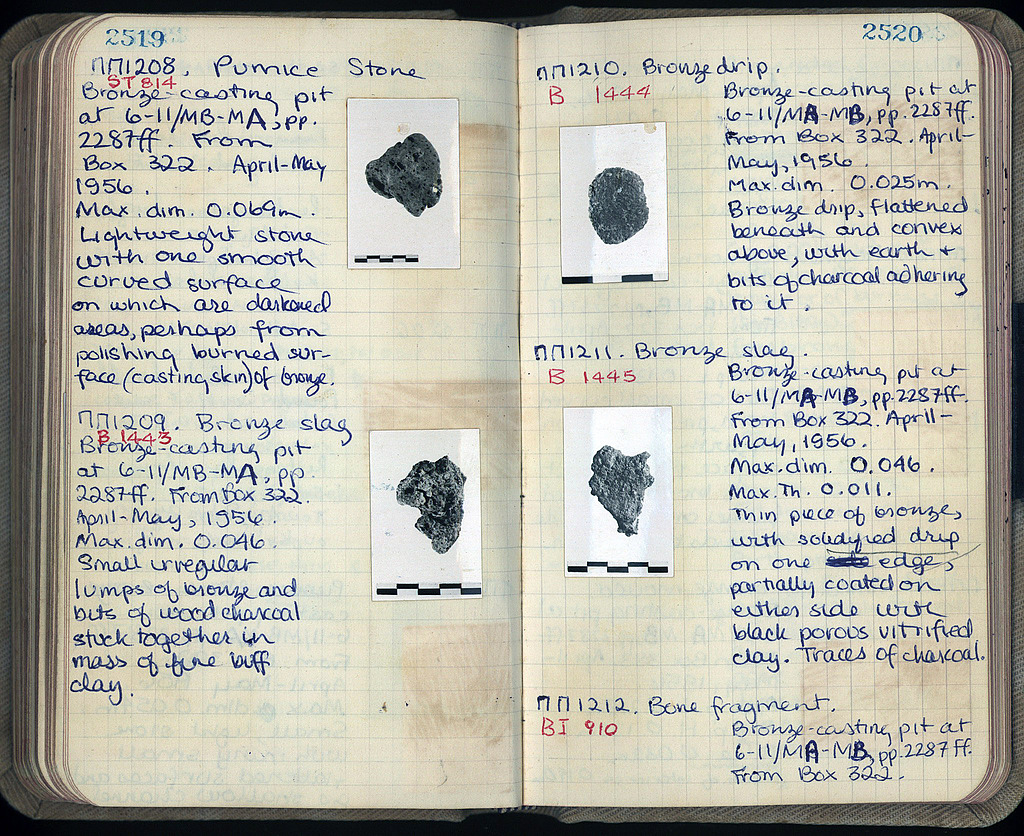 2519
ΠΠ1208. Pumice Stone
ST 814
Bronze-casting pit
at 6-11/MB-MA, pp.
2287ff. From
Box 322. April-May
1956.
Max. dim. 0.069m.
Lightweight stone
with one smooth
curved surface
on which are darkened
areas, perhaps from
polishing burned sur-
face (casting skin) of bronze.
ΠΠ1209. Bronze slag
B 1443
Bronze-casting pit
at 6-11/MB-MA, pp.
2287ff. From Box 322.
April-May, 1956.
Max. dim. 0.046.
Small irregular
lumps of bronze and
bits of wood charcoal
stuck together in
mass of fine buff
clay.
2520
ΠΠ1210. Bronze drip.
B 1444
Bronze-casting pit at
6-11/MA-MB, pp. 2287ff.
From Box 322. April-
May, 1956.
Max. dim. 0.025m.
Bronze drip, flattened
beneath and convex
above, with earth +
bits of charcoal adhering
to it.
ΠΠ1211. Bronze slag.
B 1445
Bronze-casting pit at
6-11/MA-MB, pp. 2287ff.
From Box 322. April-
May, 1956.
Max. dim. 0.046.
Max. Th. 0.011.
Thin piece of bronze,
with solidified drip
on one edge,
partially coated on
either side with
black porous vitrified
clay. Traces of charcoal.
ΠΠ1212. Bone fragment.
BI 910
Bronze-casting pit at
6-11/MA-MB, pp. 2287ff.
From Box 322.